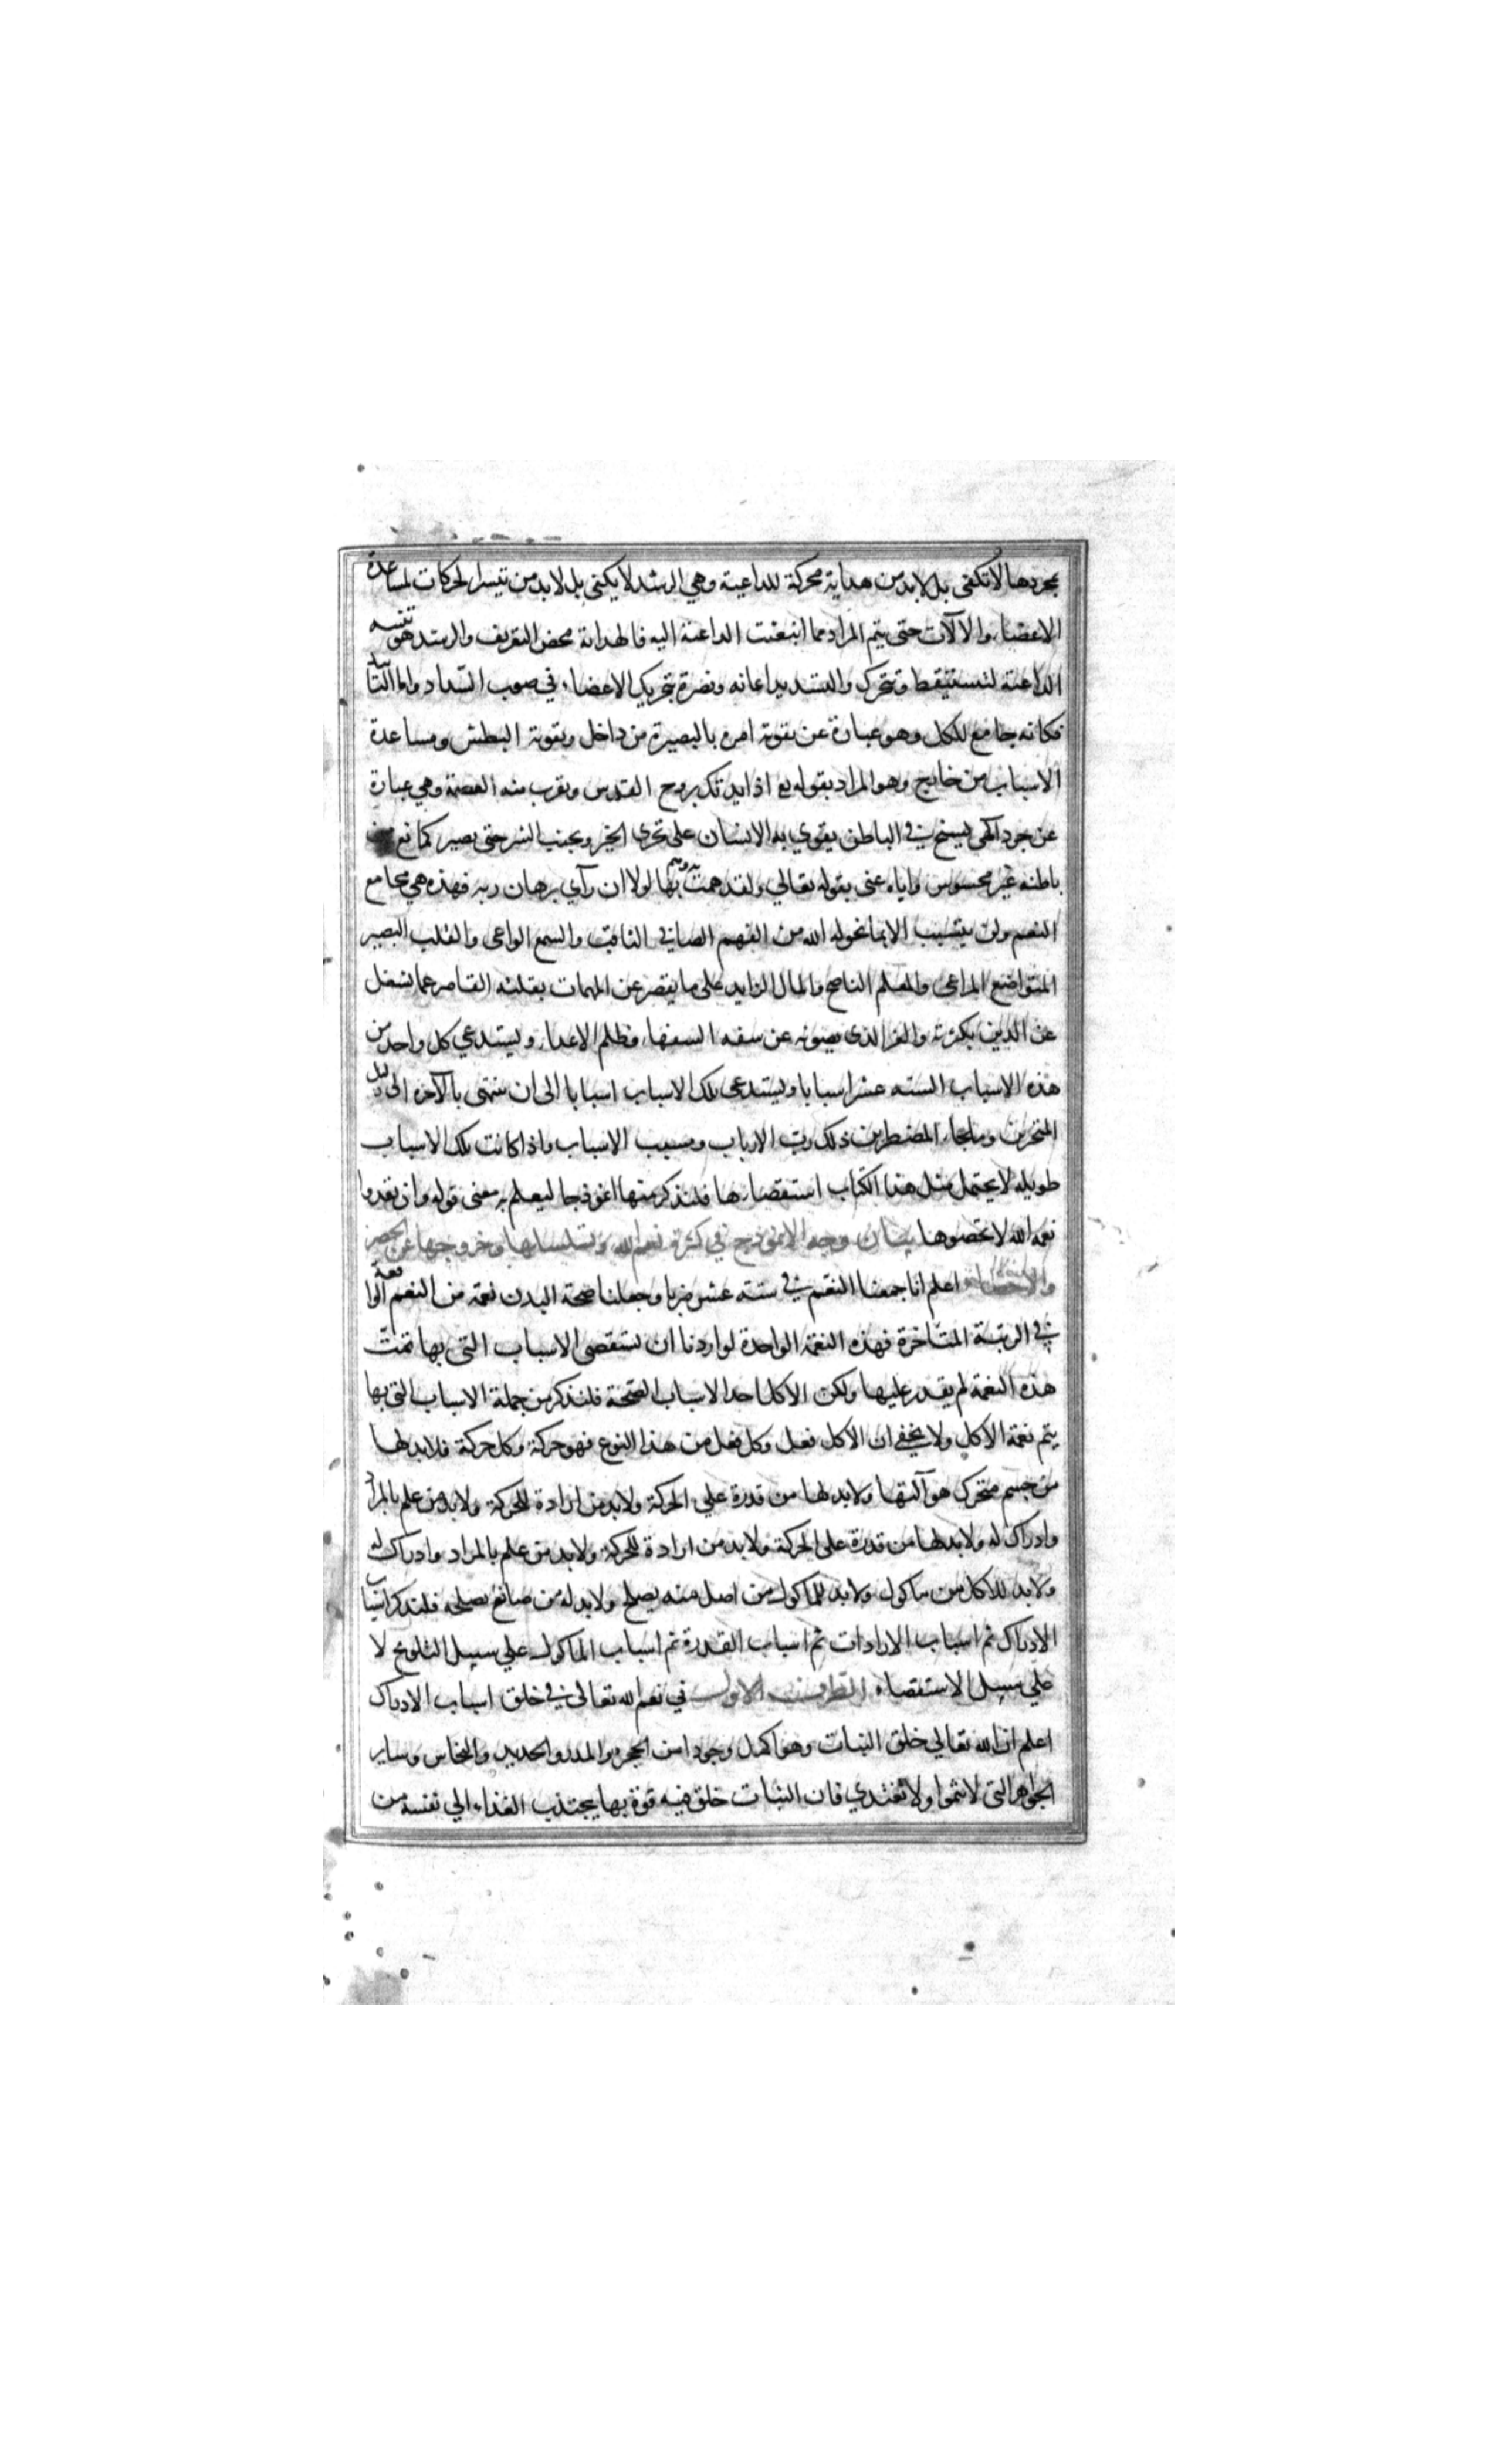 بمجردها لا تكفي بل لابد من هداية محركة للداعية وهي الرشد لا يكفي بل لابد من تيسر الحركات لمساعدة
الاعضاء والالات حتى يتم المراد مما انبعثت الداعية اليه فالهداية محض التعريف والرشد هو تنبيه
الداعية لتستيقظ وتتحرك والتسديد اعانه ونصرة بتحريك الاعضاء في صوب السداد واما التاييد
فكانه جامع للكل وهو عبارة عن تقوية امره بالبصيرة من داخل وبقوية البطش ومساعدة
الاسباب من خارج وهو المراد بقوله تع اذ ايدتك بروح القدس وتقرب منه العصمة وهي عبارة
عن جود الهي يسنح في الباطن يقوي به الانسان على تحرى الخير وتجنب الشر حتى يصير كمانع من
باطنه غير محسوس واياه عنى بقوله تعالي ولقد همت به وهم بها لولا ان رآي برهان ربه فهذه هي مجامع
النعم ولن يتثبت الا بما يخوله الله من الفهم الصافي الثاقب والسمع الواعى والقلب البصير
المتواضع المراعى والمعلم الناصح والمال الزايد على ما يقصر عن المهمات بقلته القاصر عما يشغل
عن الدين بكثرته والعز الذى يصونه عن سفه السفهاء وظلم الاعداء ويستدعي كل واحد من
هذه الاسباب السته عشر اسبابا ويستدعى تلك الاسباب اسبابا الى ان ينتهى بالآخره الى دليل
المتحيرين وملجاء المضطرين ذلك رب الارباب ومسبب الاسباب واذا كانت تلك الاسباب
طويله لا يحتمل مثل هذا الكتاب استقصاءها فلنذكر منها انموذجا ليعلم به معنى قوله وان تعدوا
نعمه الله لا تحصوها بيان وجه الانموذج في كثرة نعم الله وتسلسلها وخروجها عن الحصر
والاحصاء اعلم انا جمعنا النعم في سته عشر ضربا وجعلنا صحة البدن نعمة من النعم الواقعة
في الرتبة المتاخرة فهذه النعمة الواحدة لو اردنا ان نستقصى الاسباب التى بها تمت
هذه النعمة لم يقدر عليها ولكن الاكل احد الاسباب الصحة فلنذكر من جملة الاسباب التى بها
يتم نعمة الاكل ولا يخفي ان الاكل فعل وكل فعل من هذا النوع فهو حركة وكل حركة فلابد لها
من جسم متحرك هو آلتها ولابد لها من قدرة علي الحركة ولابد من ارادة للحركة ولابد من علم بالمراد
وادراك له ولابد لها من قدرة على الحركة ولابد من ارادة للحركة ولابد من علم بالمراد وادراك له
ولابد للاكل من ماكول ولابد للماكول من اصل منه يصلح ولابد له من صانع يصلحه فلنذكر اسباب
الادراك ثم اسباب الارادات ثم اسباب القدرة ثم اسباب الماكول علي سبيل التلويح لا
علي سبيل الاستقصاء الطرف الاول في نعم الله تعالى في خلق اسباب الادراك
اعلم ان الله تعالي خلق النبات وهو اكمل وجودا من الحجر والمدر والحديد والنحاس وساير
الجواهر التى لا تنموا ولا تغتذي فان النبات خلق فيه قوة بها يجتذب الغذاء الي نفسه من